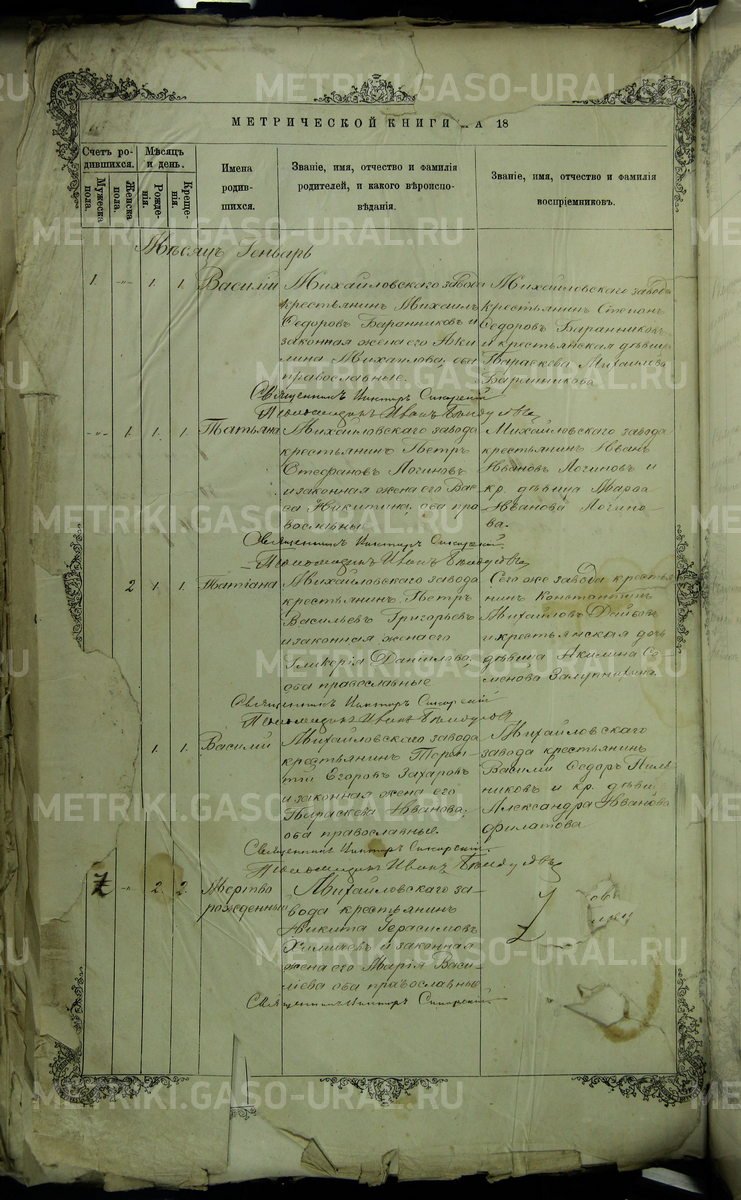 МЕТРИЧЕСКОЙ КНИГИ НА 18
Счетъ родившихся.
Мужеска пола.
Женска пола.
Мѣсяцъ и день.
Рожденія.
Крещенія.
Имена родившихся.
Званіе, имя, отчество и фамилія родителей, и какого вѣроисповѣданія.
Званіе, имя, отчество и фамилія воспріемниковъ.
Мѣсяцъ Генварь
1. -"- 1. 1. Василій
Михайловскаго завода
крестьянинъ Михаилъ
Ѳедоровъ Баранниковъ и
законная жена его Аки-
лина Михайлова, оба
православные.
Михайловскаго завода
крестьянинъ Степанъ
Ѳедоровъ Баранниковъ
и крестьянская дѣвица
Параскева Михайлова
Священникъ Викторъ
Псаломщикъ Иванъ
-"- 1. 1. 1. Татьяна
Михайловскаго завода
крестьянинъ Петръ
Стефановъ Логиновъ
и законная жена его Вас-
са Никитина, оба пра-
вославны
Михайловскаго завода
крестьянинъ Иванъ
Ивановъ Логиновъ и
кр. дѣвица Марѳа
Иванова Логино-
ва.
Священникъ Викторъ
Псаломщикъ Иванъ
2 1. 1. Татіана
Михайловскаго завода
крестьянинъ Петръ
Васильевъ Григорьевъ
и законная жена его
Гликерія Данилова,
оба православные
Сего же завода кресть-
нинъ Константинъ
Михайловъ
и крестьянская дочь
дѣвица Акилина Се-
менова
Священникъ Викторъ
Псаломщикъ Иванъ
1. 1. Василій
Михайловскаго завода
крестьянинъ Терен-
тій Егоровъ Захаровъ
и законная жена его
Параскева Иванова,
оба православные.
Михайловскаго
завода крестьянинъ
Василій Ѳедоръ Пим-
никовъ и кр. дѣви
Александра Иванова
Филатова
Священникъ Викторъ
Псаломщикъ Иванъ
-"- 2. 2. Мертво
рожденный
Михайловскаго за-
вода крестьянинъ
Никита Герасимовъ
и законная
жена его Марія Васи-
лієва оба православные
Священникъ Викторъ
METRIKI.GASO-URAL.RU